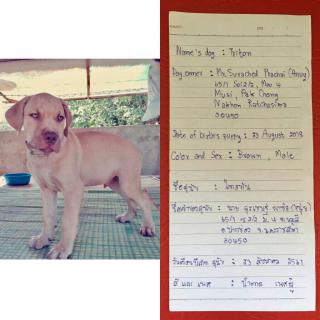 Name's dog : Tritan
Dog owner : Mr. Surached Prachai (Aruy)
65/1 Soi 2/2, Moo 4
Musi, Pak Chong
Nakhon Ratchasima
30450
Date of births puppy : 23 August 2018
Color and Sex : Brown , Male
ชื่อสุนัข : ไทรทัน
ชื่อเจ้าของสุนัข : นาย
65/1 ซ.2/2 ม.4 ต.หมูสี
อ.ปากช่อง จ.นครราชสีมา
30450
วันเดือนปีเกิด สุนัข : 23 สิงหาคม 2561
สี และ เพศ : น้ำตาล เพศผู้